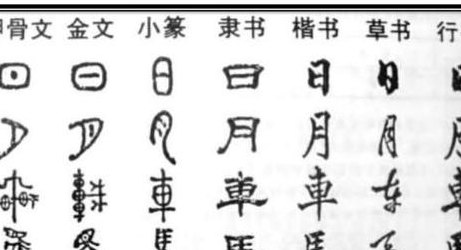 骨文 金文 小篆 隶书 楷书 草书 行
日 日 日 日 日 日
月 月 月 月 月 月 月
車 車 車 車 車 车
馬 馬 馬